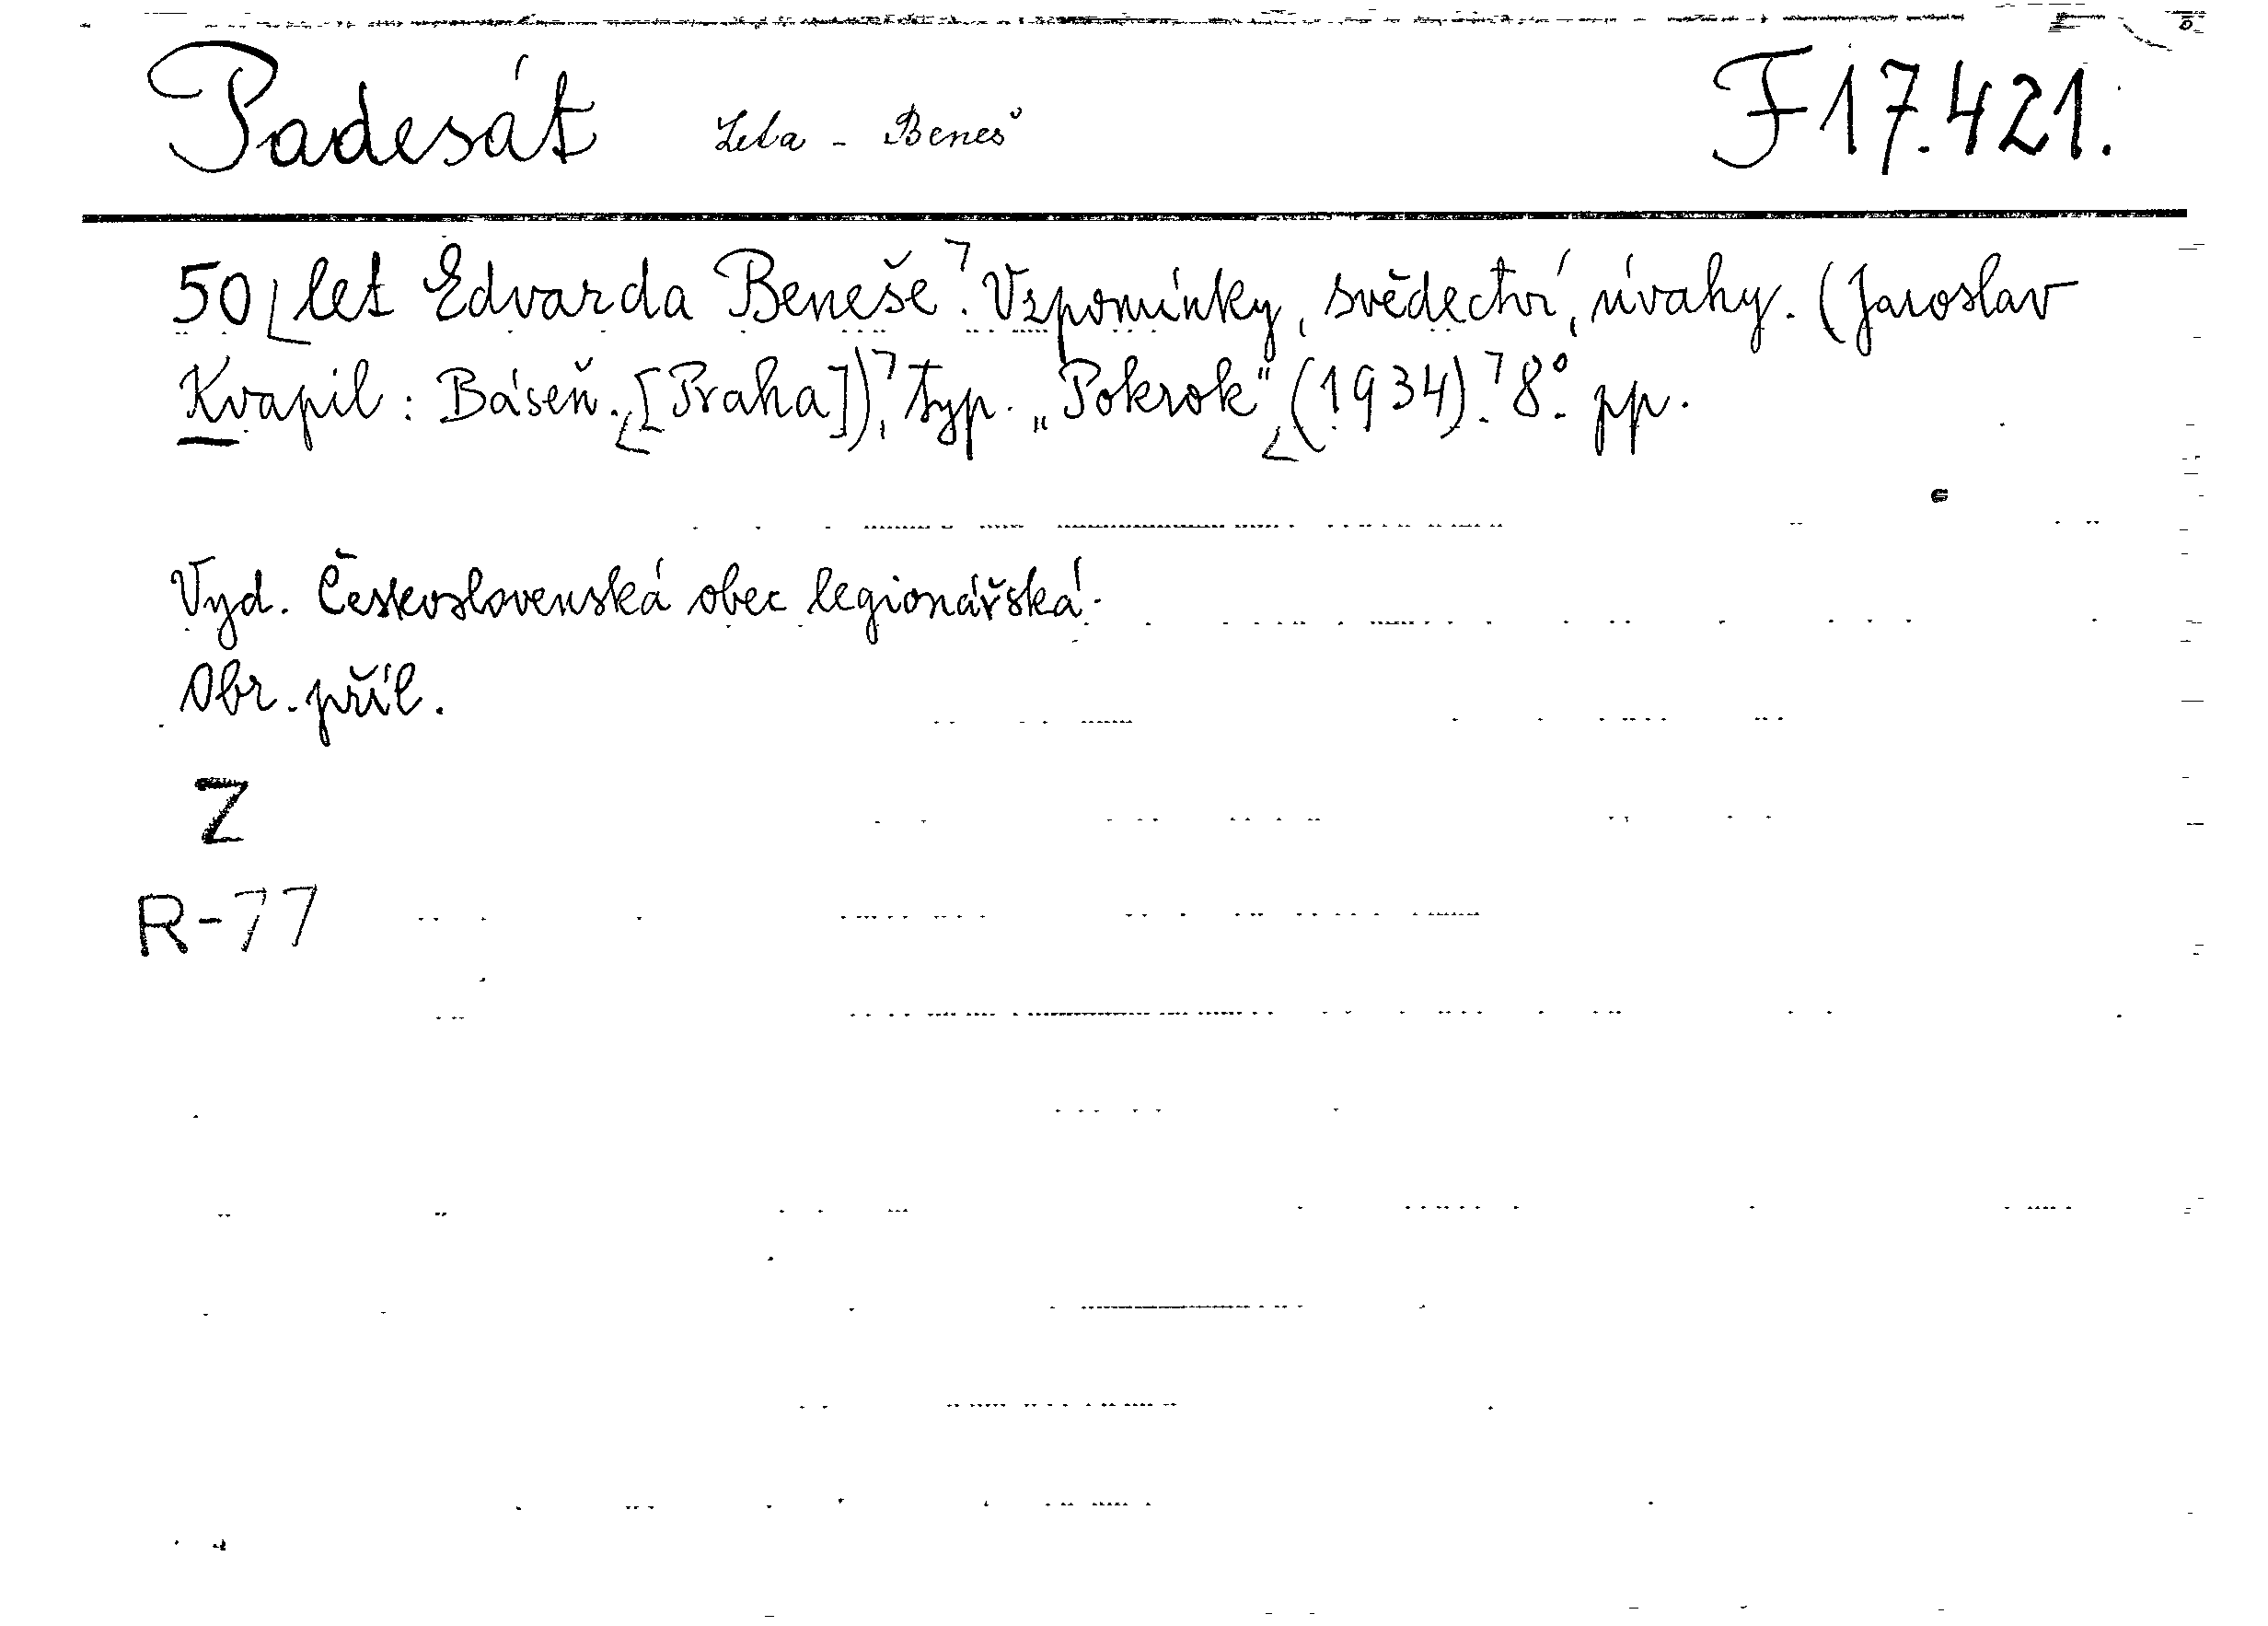 Padesát Leta - Beneš F 17.421.
50 let Edvarda Beneše. Vzpomínky, svědectví, úvahy. (Jaroslav
Kvapil: Báseň. [Praha]), typ. „Pokrok“ (1934). 8°. pp.
Vyd. Československá obec legionářská.
Obr. příl.
Z
R-77